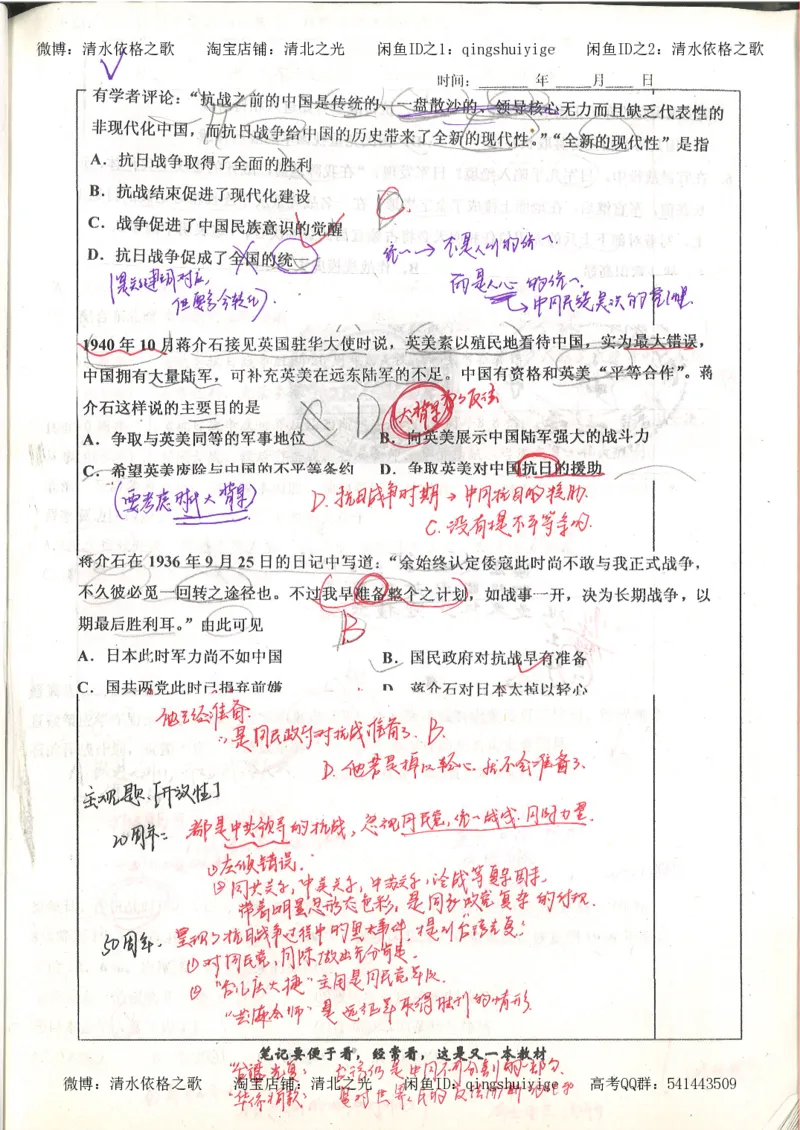 微博：清水依格之歌 淘宝店铺：清北之光 闲鱼ID之1：qingshuiyige 闲鱼ID之2：清水依格之歌
时间： 年 月 日
有学者评论：“抗战之前的中国是传统的、一盘散沙的、领导核心无力而且缺乏代表性的
非现代化中国，而抗日战争给中国的历史带来了全新的现代性。”“全新的现代性”是指
A．抗日战争取得了全面的胜利
B．抗战结束促进了现代化建设
C．战争促进了中国民族意识的觉醒
D．抗日战争促成了全国的统一
统一→不是人们的统一
而是人心的统一
→中国民族意识的觉醒
1940年10月蒋介石接见英国驻华大使时说，英美素以殖民地看待中国，实为最大错误，
中国拥有大量陆军，可补充英美在远东陆军的不足。中国有资格和英美“平等合作”。蒋
介石这样说的主要目的是
D
(大背景
A．争取与英美同等的军事地位 B．向英美展示中国陆军强大的战斗力
C．希望英美废除与中国的不平等条约 D．争取英美对中国抗日的援助
(要考虑时代大背景)
D.抗日战争时期→中国抗日的援助.
C.没有提不平等条约.
蒋介石在1936年9月25日的日记中写道：“余始终认定倭寇此时尚不敢与我正式战争，
不久彼必觅一回转之途径也。不过我早准备整个之计划，如战事一开，决为长期战争，以
期最后胜利耳。”由此可见
B
A．日本此时军力尚不如中国 B．国民政府对抗战早有准备
C．国共两党此时已捐弃前嫌 D．蒋介石对日本太掉以轻心
他已经准备.
∴是国民政府对抗战准备了. B.
D.他若是掉以轻心.就不会准备了.
主观题.[开放性]
20周年: 都是中共领导的抗战,忽视国民党,统一战线.国际力量.
①左倾错误.
②国共关系,中美关系,中苏关系,冷战等复杂因素.
带着明显意识形态色彩,是国家政策复杂的体现.
50周年. 呈现了抗日战争过程中的重大事件,提到台湾光复:
①对国民党,国际做出充分肯定.
②“台儿庄大捷”主角是国民党军队.
“出海会师”是远征军取得胜利的情形.
笔记要便于看，经常看，这是又一本教材
“台湾光复: 台湾仍是中国不可分割的一部分.
“华侨捐款:
微博：清水依格之歌 淘宝店铺：清北之光 闲鱼ID：qingshuiyige 高考QQ群：541443509